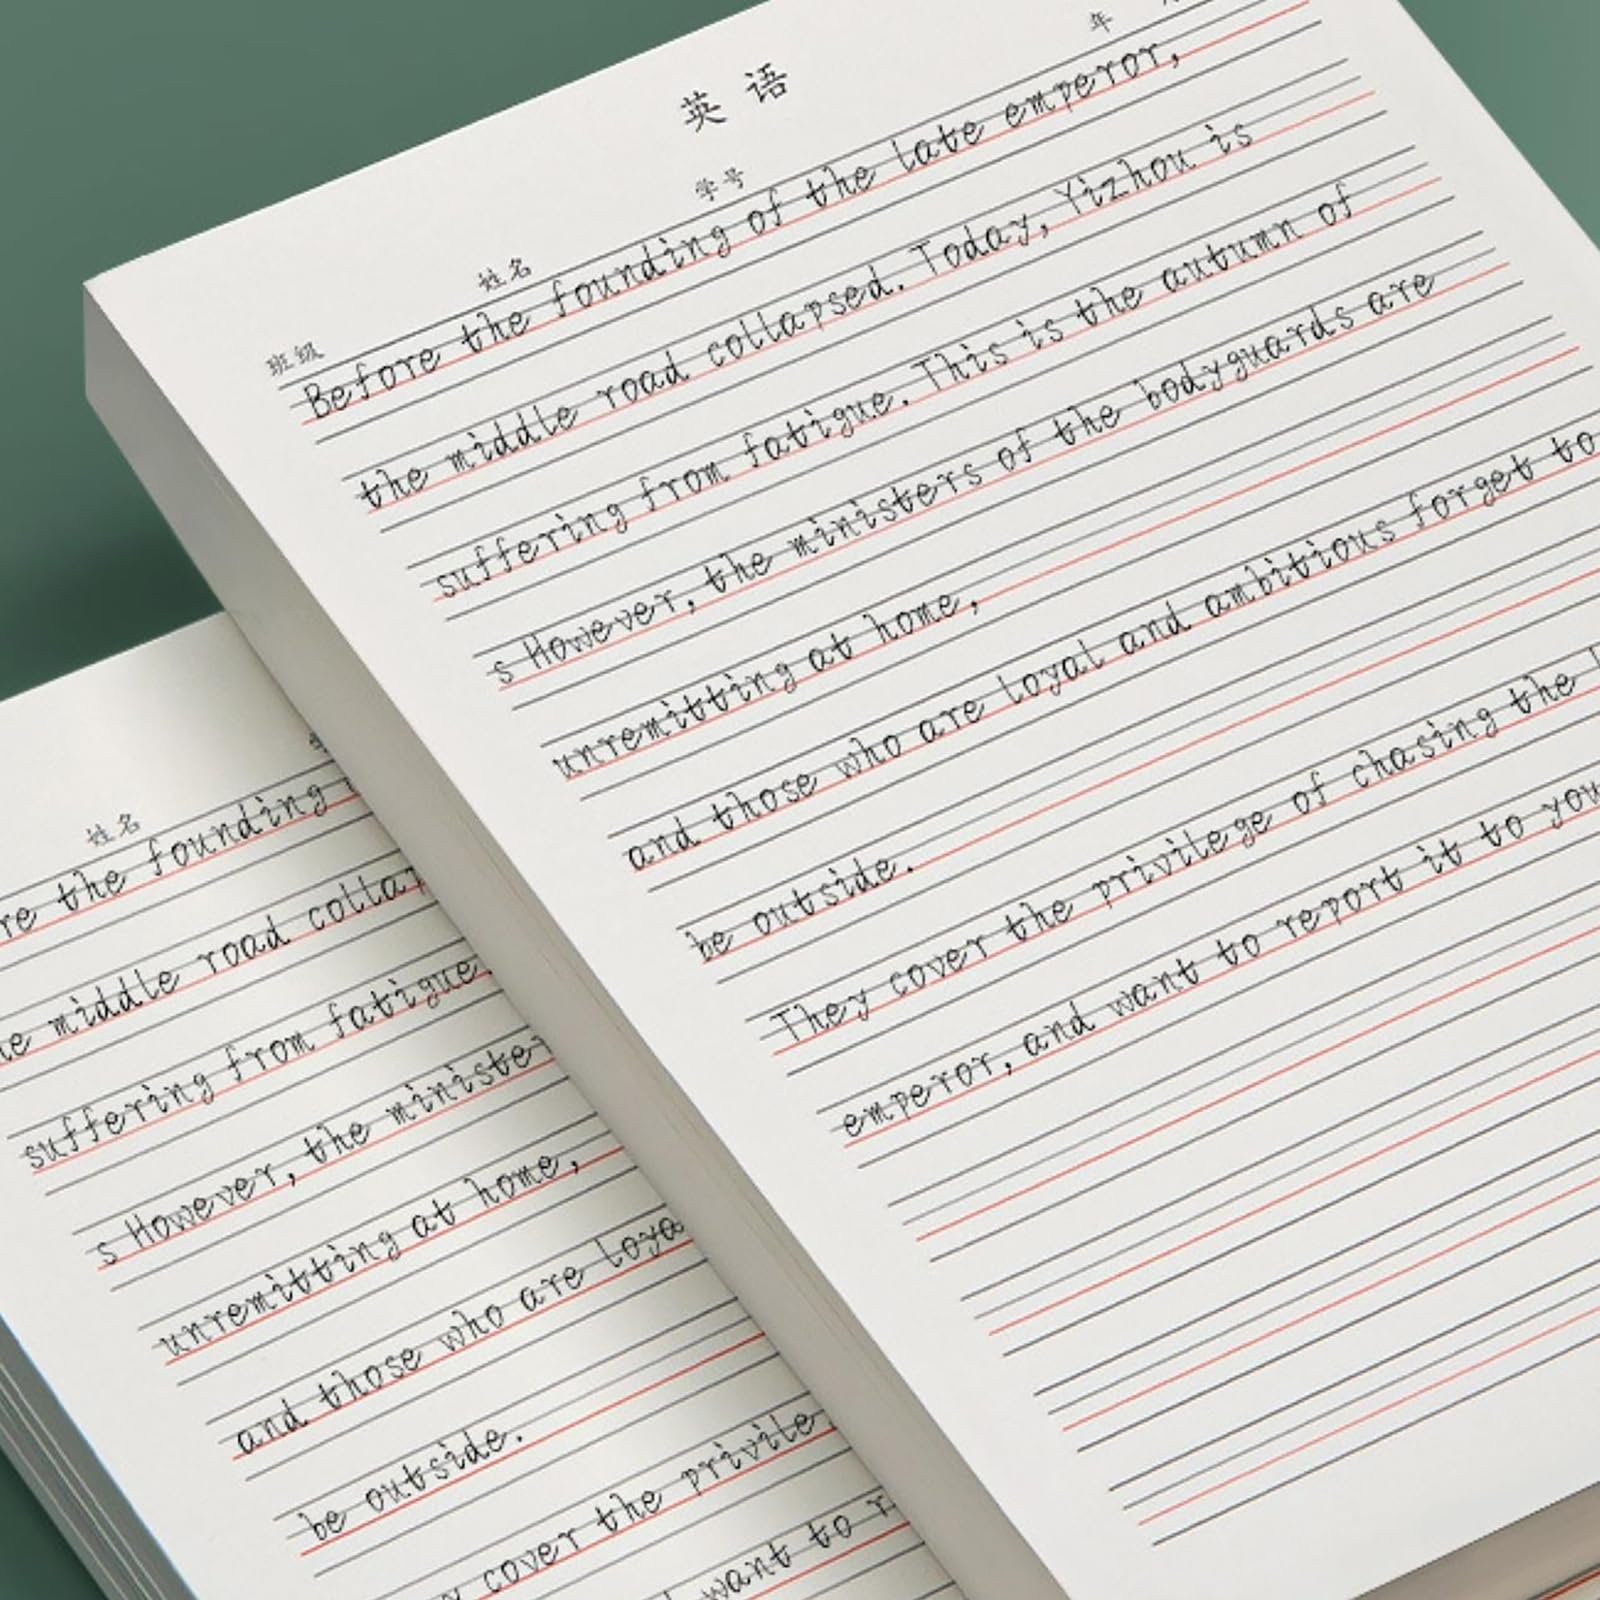 英语
班级 姓名 学号 年
Before the founding of the late emperor,
the middle road collapsed. Today, Yizhou is
suffering from fatigue. This is the autumn of
s However, the ministers of the bodyguards are
unremitting at home,
and those who are loyal and ambitious forget to
be outside.
They cover the privilege of chasing the
emperor, and want to report it to you
姓名
the founding
middle road
suffering from fatigue
s However, the
unremitting at home,
and those who are
be outside.
cover the
want to